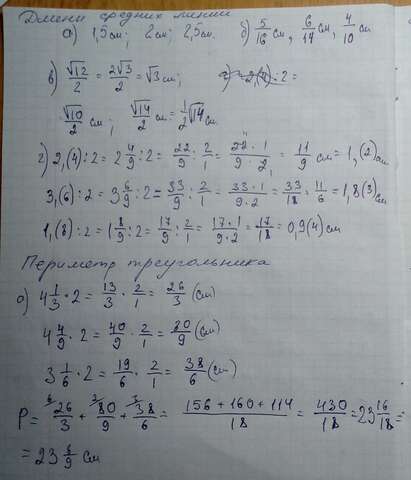 Длины средних линии
а) 1,5 см; 2 см; 2,5 см. б) 5/16 см, 6/17 см, 4/10 см
в) √12/2 = 2√3/2 = √3 см;
√10/2 см; √14/2 см = 1/2 √14 см
г) 2,(4) : 2 = 2 4/9 : 2 = 22/9 : 2/1 = 22 · 1/9 · 2 = 11/9 см = 1,(2) см
3,(6) : 2 = 3 6/9 : 2 = 33/9 : 2/1 = 33 · 1/9 · 2 = 33/18 = 11/6 = 1,8(3) см
1,(8) : 2 = 1 8/9 : 2 = 17/9 : 2/1 = 17 · 1/9 · 2 = 17/18 = 0,9(4) см
Периметр треугольника
а) 4 1/3 · 2 = 13/3 · 2/1 = 26/3 (см)
4 4/9 · 2 = 40/9 · 2/1 = 80/9 (см)
3 1/6 · 2 = 19/6 · 2/1 = 38/6 (см)
P = 26/3 + 80/9 + 38/6 = 156 + 160 + 114/18 = 430/18 = 23 16/18 =
= 23 8/9 см